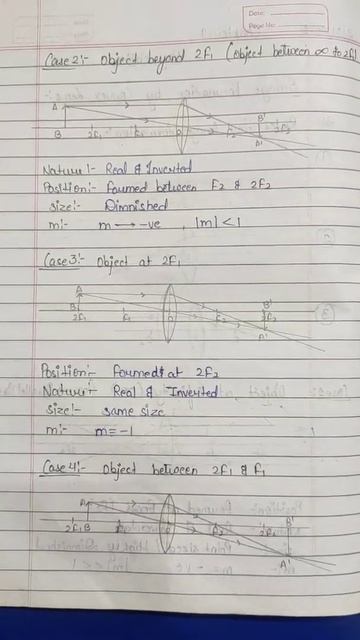 Date:
Page No:
Case 2:- Object beyond 2F1 (object between ∞ to 2F1)
A
B 2F1 F1 O F2 B' 2F2
A'
Nature:- Real & Inverted
Position:- Formed between F2 & 2F2
size:- Diminished
m:- m → -ve , |m| < 1
Case 3:- Object at 2F1
A
B B'
2F1 F1 O F2 2F2
A'
Position:- formed at 2F2
Nature:- Real & Inverted
size:- same size
m:- m = -1
Case 4:- Object between 2F1 & F1
A B'
2F1 B F1 O F2 2F2
A'